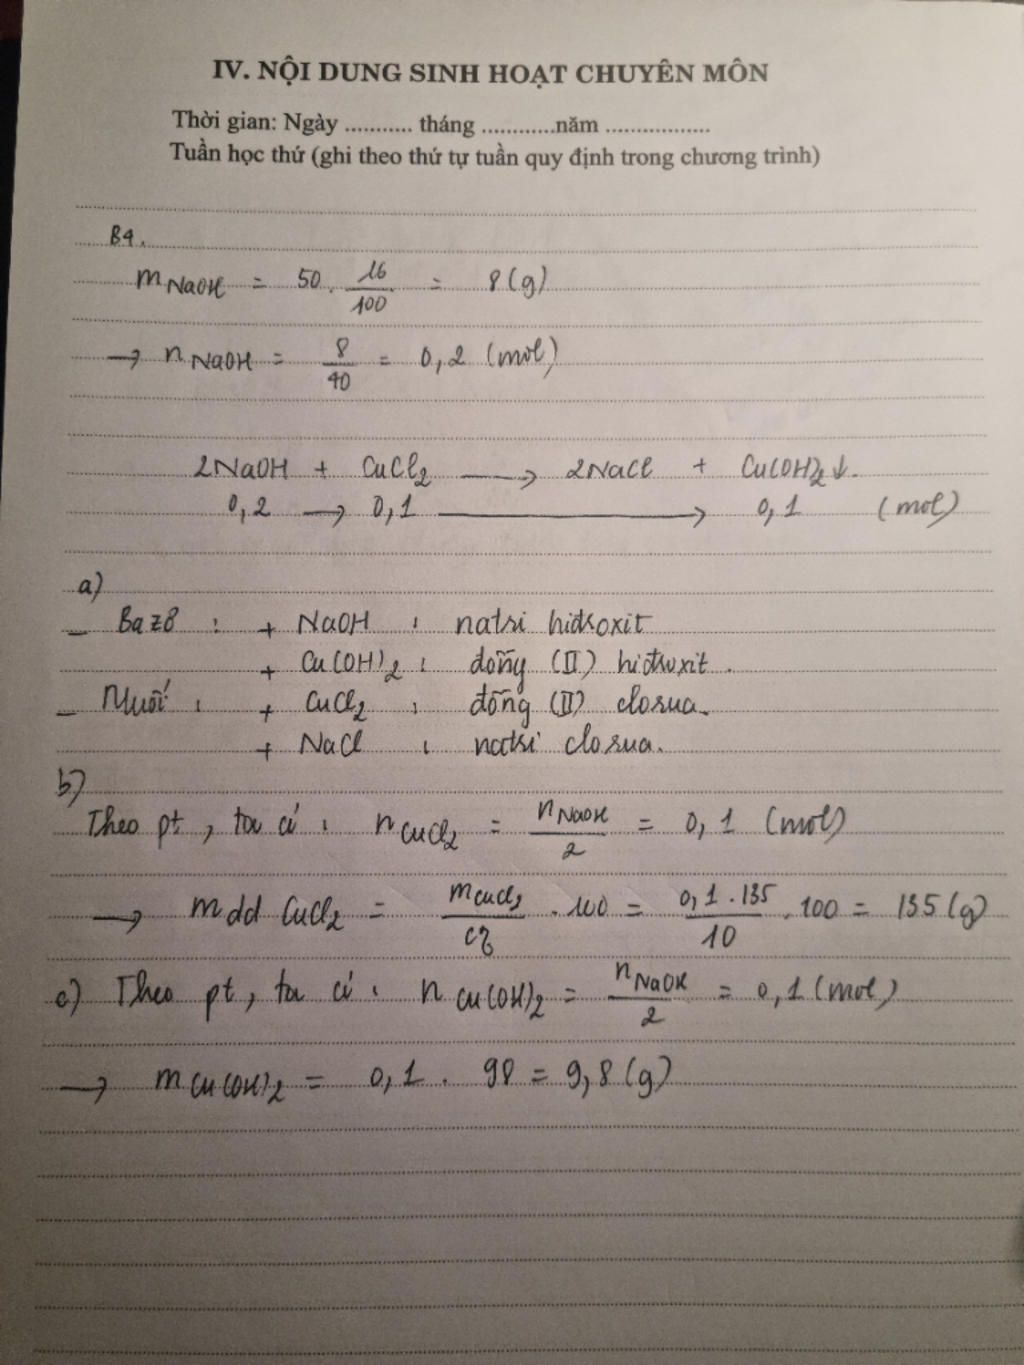 IV. NỘI DUNG SINH HOẠT CHUYÊN MÔN
Thời gian: Ngày ........... tháng ............năm .................
Tuần học thứ (ghi theo thứ tự tuần quy định trong chương trình)
B4.
m NaOH = 50 . 16/100 = 8 (g)
→ n NaOH = 8/40 = 0,2 (mol)
2NaOH + CuCl₂ → 2NaCl + Cu(OH)₂↓.
0,2 → 0,1 → 0,1 (mol)
a)
– Bazơ : + NaOH : natri hiđroxit
+ Cu(OH)₂ : đồng (II) hiđroxit .
– Muối : + CuCl₂ : đồng (II) clorua.
+ NaCl : natri clorua.
b)
Theo pt , ta có : n CuCl₂ = n NaOH/2 = 0,1 (mol)
→ m dd CuCl₂ = m CuCl₂/C% . 100 = 0,1 . 135/10 . 100 = 135 (g)
c) Theo pt , ta có : n Cu(OH)₂ = n NaOH/2 = 0,1 (mol)
→ m Cu(OH)₂ = 0,1 . 98 = 9,8 (g)